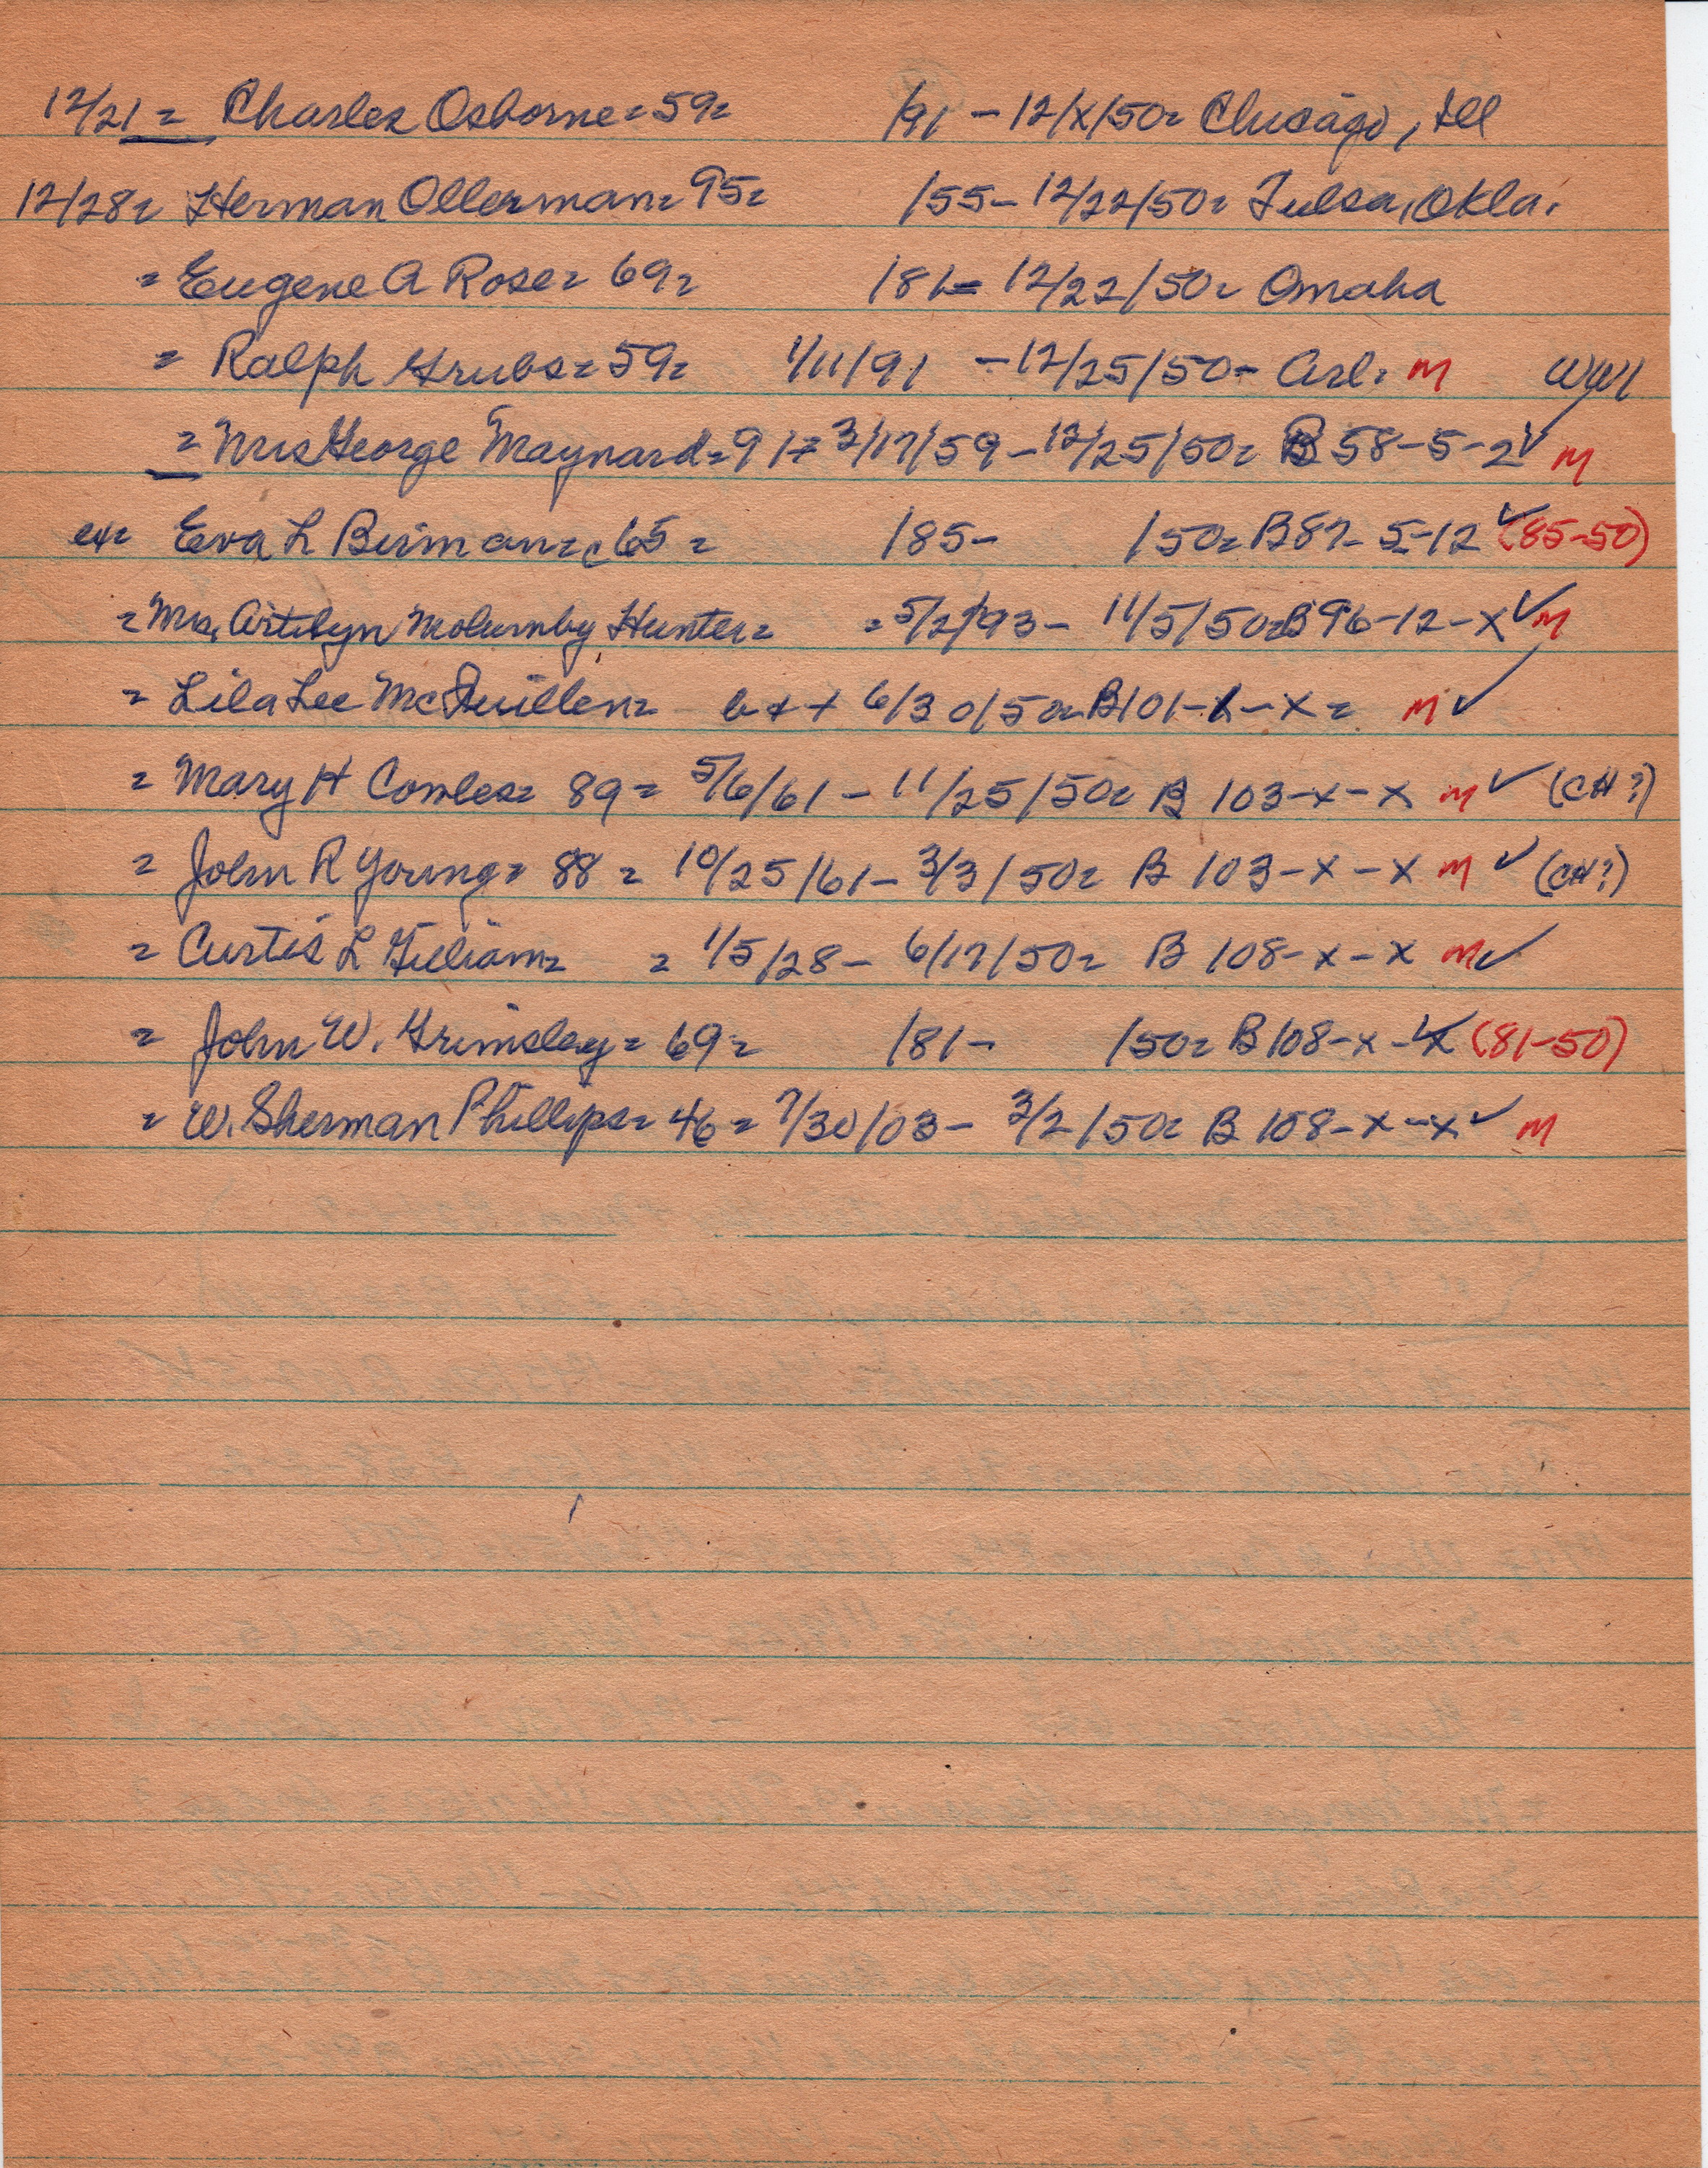 12/21 = Charles Osborne = 59 = /91 - 12/x/50 = Chicago, Ill
12/28 = Herman Ollerman = 95 = /55 - 12/22/50 = Tulsa, Okla.
= Eugene A Rose = 69 = /81 = 12/22/50 = Omaha
= Ralph Grubs = 59 = 1/11/91 - 12/25/50 = Arl. M WW1
= Mrs George Maynard = 91 = 3/17/59 - 12/25/50 = B 58-5-2 ✓ M
ex = Eva L Birman = c 65 = /85 - /50 = B 87-5-12 ✓ (85-50)
= Mrs. Molumby Hunter = = 5/2/93 - 11/5/50 = B 96-12-x ✓ M
= Lila Lee McQuillen = 6/30/50 = B 101-x-x = M ✓
= Mary H Cowles = 89 = 5/6/61 - 11/25/50 = B 103-x-x M ✓ (CH?)
= John R Young = 88 = 10/25/61 - 3/3/50 = B 103-x-x M ✓ (CH?)
= Curtis L Guliam = = 1/5/28 - 6/17/50 = B 108-x-x M ✓
= John W. Grimsley = 69 = /81 - /50 = B 108-x-x (81-50)
= W. Sherman Phillips = 46 = 7/30/03 - 3/2/50 = B 108-x-x ✓ M